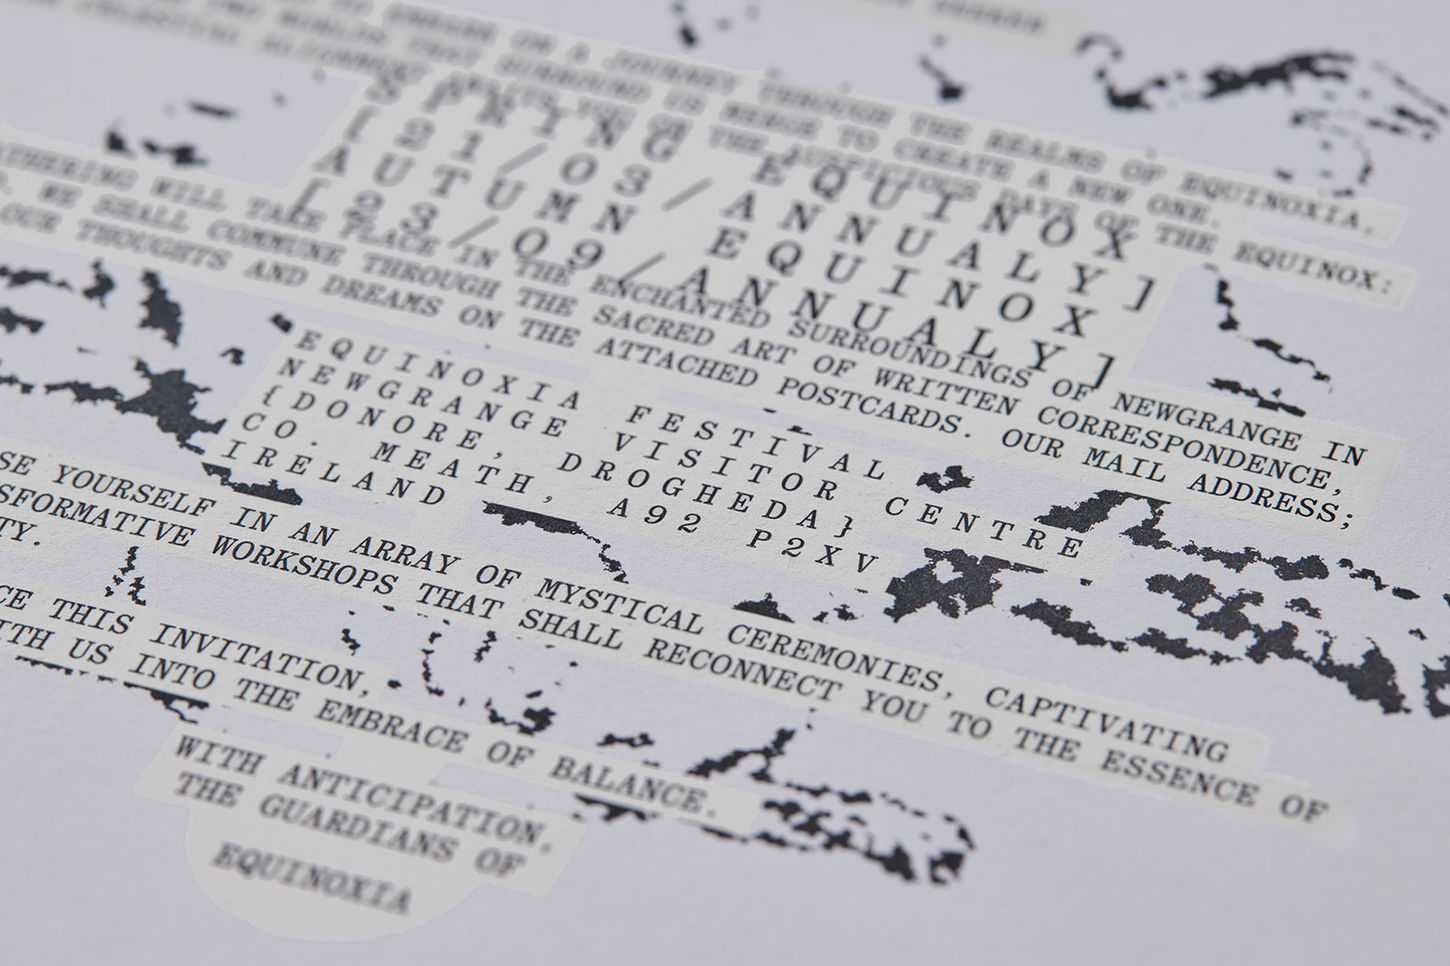 TO EMBARK ON A JOURNEY THROUGH THE REALMS OF EQUINOXIA,
THE TWO WORLDS THAT SURROUND US MERGE TO CREATE A NEW ONE.
CELESTIAL ALIGNMENT AWAITS YOU ON THE AUSPICIOUS DAYS OF THE EQUINOX:
SPRING EQUINOX
[21/03/ANNUALY]
AUTUMN EQUINOX
[23/09/ANNUALY]
WILL TAKE PLACE IN THE ENCHANTED SURROUNDINGS OF NEWGRANGE IN
WE SHALL COMMUNE THROUGH THE SACRED ART OF WRITTEN CORRESPONDENCE,
OUR THOUGHTS AND DREAMS ON THE ATTACHED POSTCARDS. OUR MAIL ADDRESS;
EQUINOXIA FESTIVAL
NEWGRANGE VISITOR CENTRE
{DONORE, DROGHEDA}
CO. MEATH, A92 P2XV
IRELAND
SE YOURSELF IN AN ARRAY OF MYSTICAL CEREMONIES, CAPTIVATING
SFORMATIVE WORKSHOPS THAT SHALL RECONNECT YOU TO THE ESSENCE OF
TY.
CE THIS INVITATION,
ITH US INTO THE EMBRACE OF BALANCE.
WITH ANTICIPATION,
THE GUARDIANS OF
EQUINOXIA